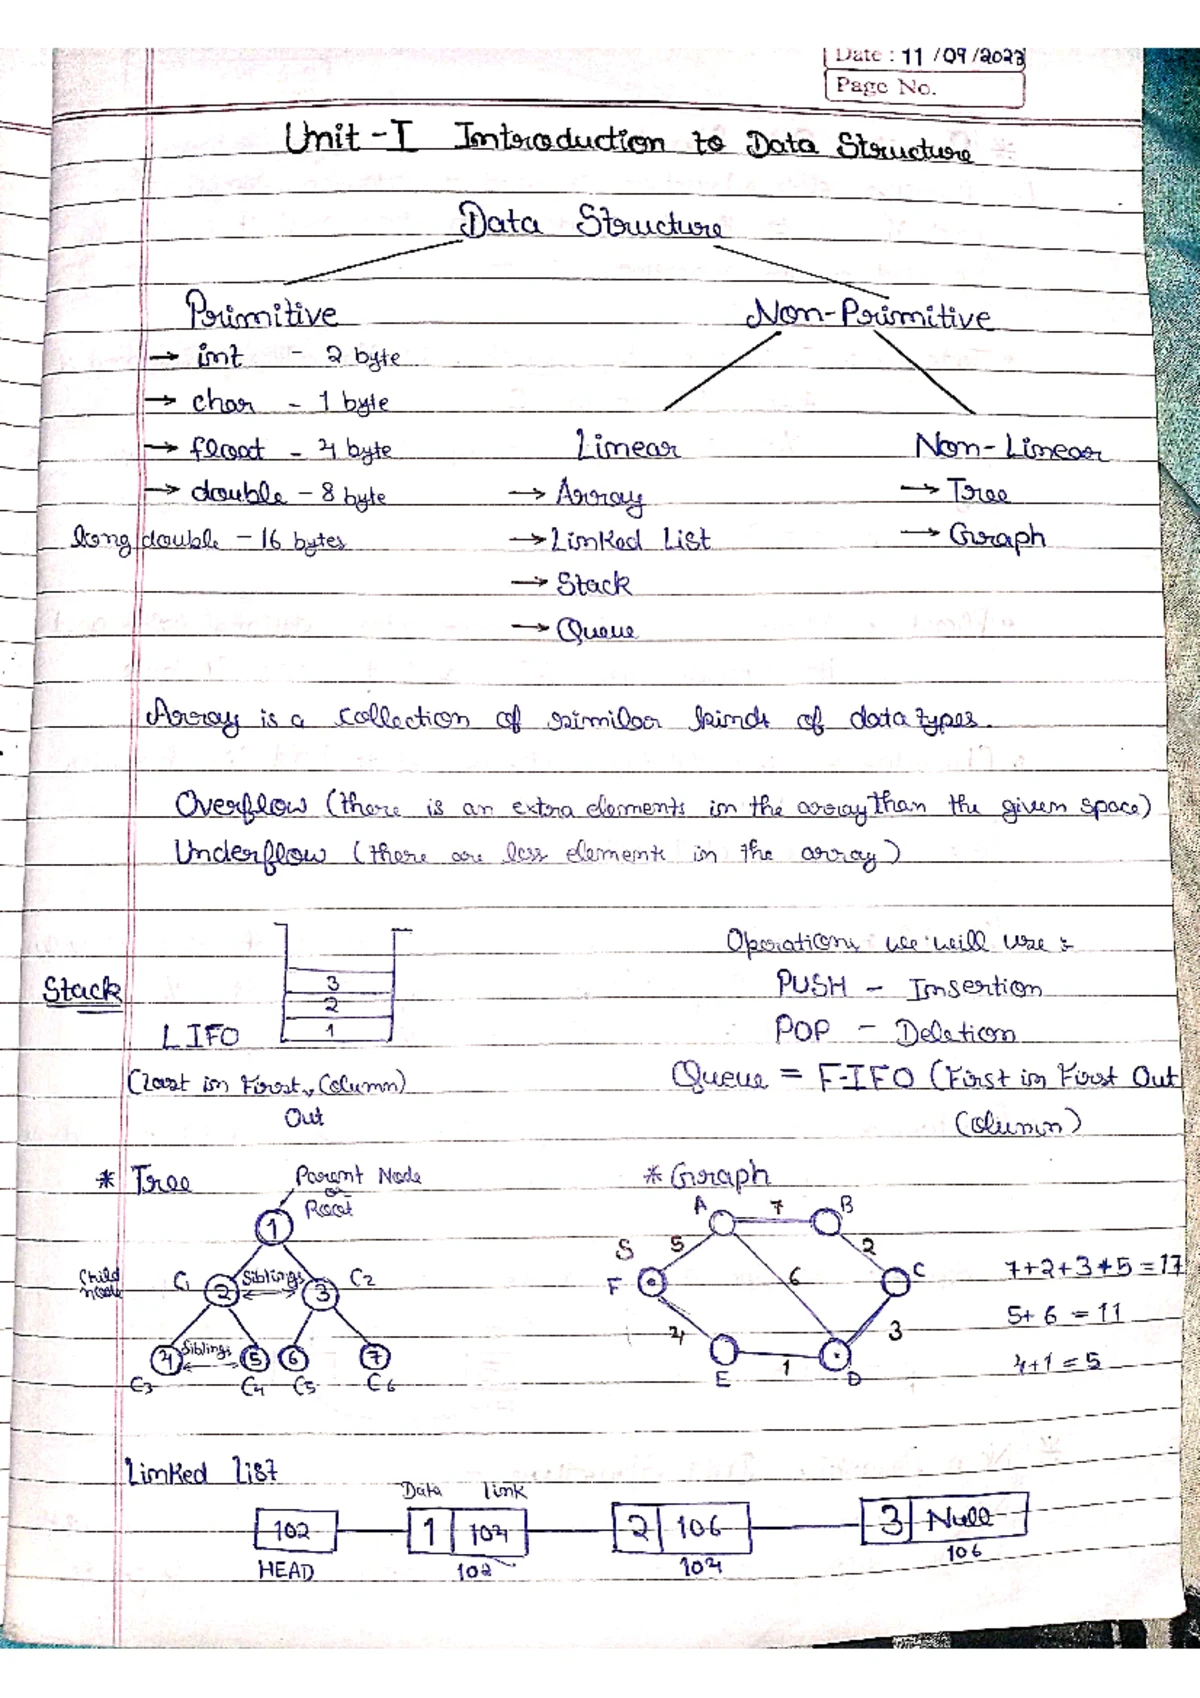 Date : 11/09/2023
Page No.
Unit - I Introduction to Data Structure
Data Structure
Primitive Non-Primitive
→ int - 2 byte
→ char - 1 byte
→ float - 4 byte Linear Non-Linear
→ double - 8 byte → Array → Tree
long double - 16 bytes → Linked List → Graph
→ Stack
→ Queue
Array is a collection of similar kinds of data types.
Overflow (there is an extra elements in the array than the given space)
Underflow (there are less elements in the array)
Operations we will use :
Stack 3 PUSH - Insertion
2
LIFO 1 POP - Deletion
(Last in First, Column) Queue = F-IFO (First in First Out
Out Column)
* Tree Parent Node * Graph
or
Root A 7 B
1 S 5 2
Child node C1 2 Siblings 3 C2 F 6 C 7+2+3+5=17
4 3 5+6=11
4 Siblings 5 6 7 1 4+1=5
C3 C4 C5 C6 E D
Linked List
Data link
102 1 104 2 106 3 Null
HEAD 102 104 106